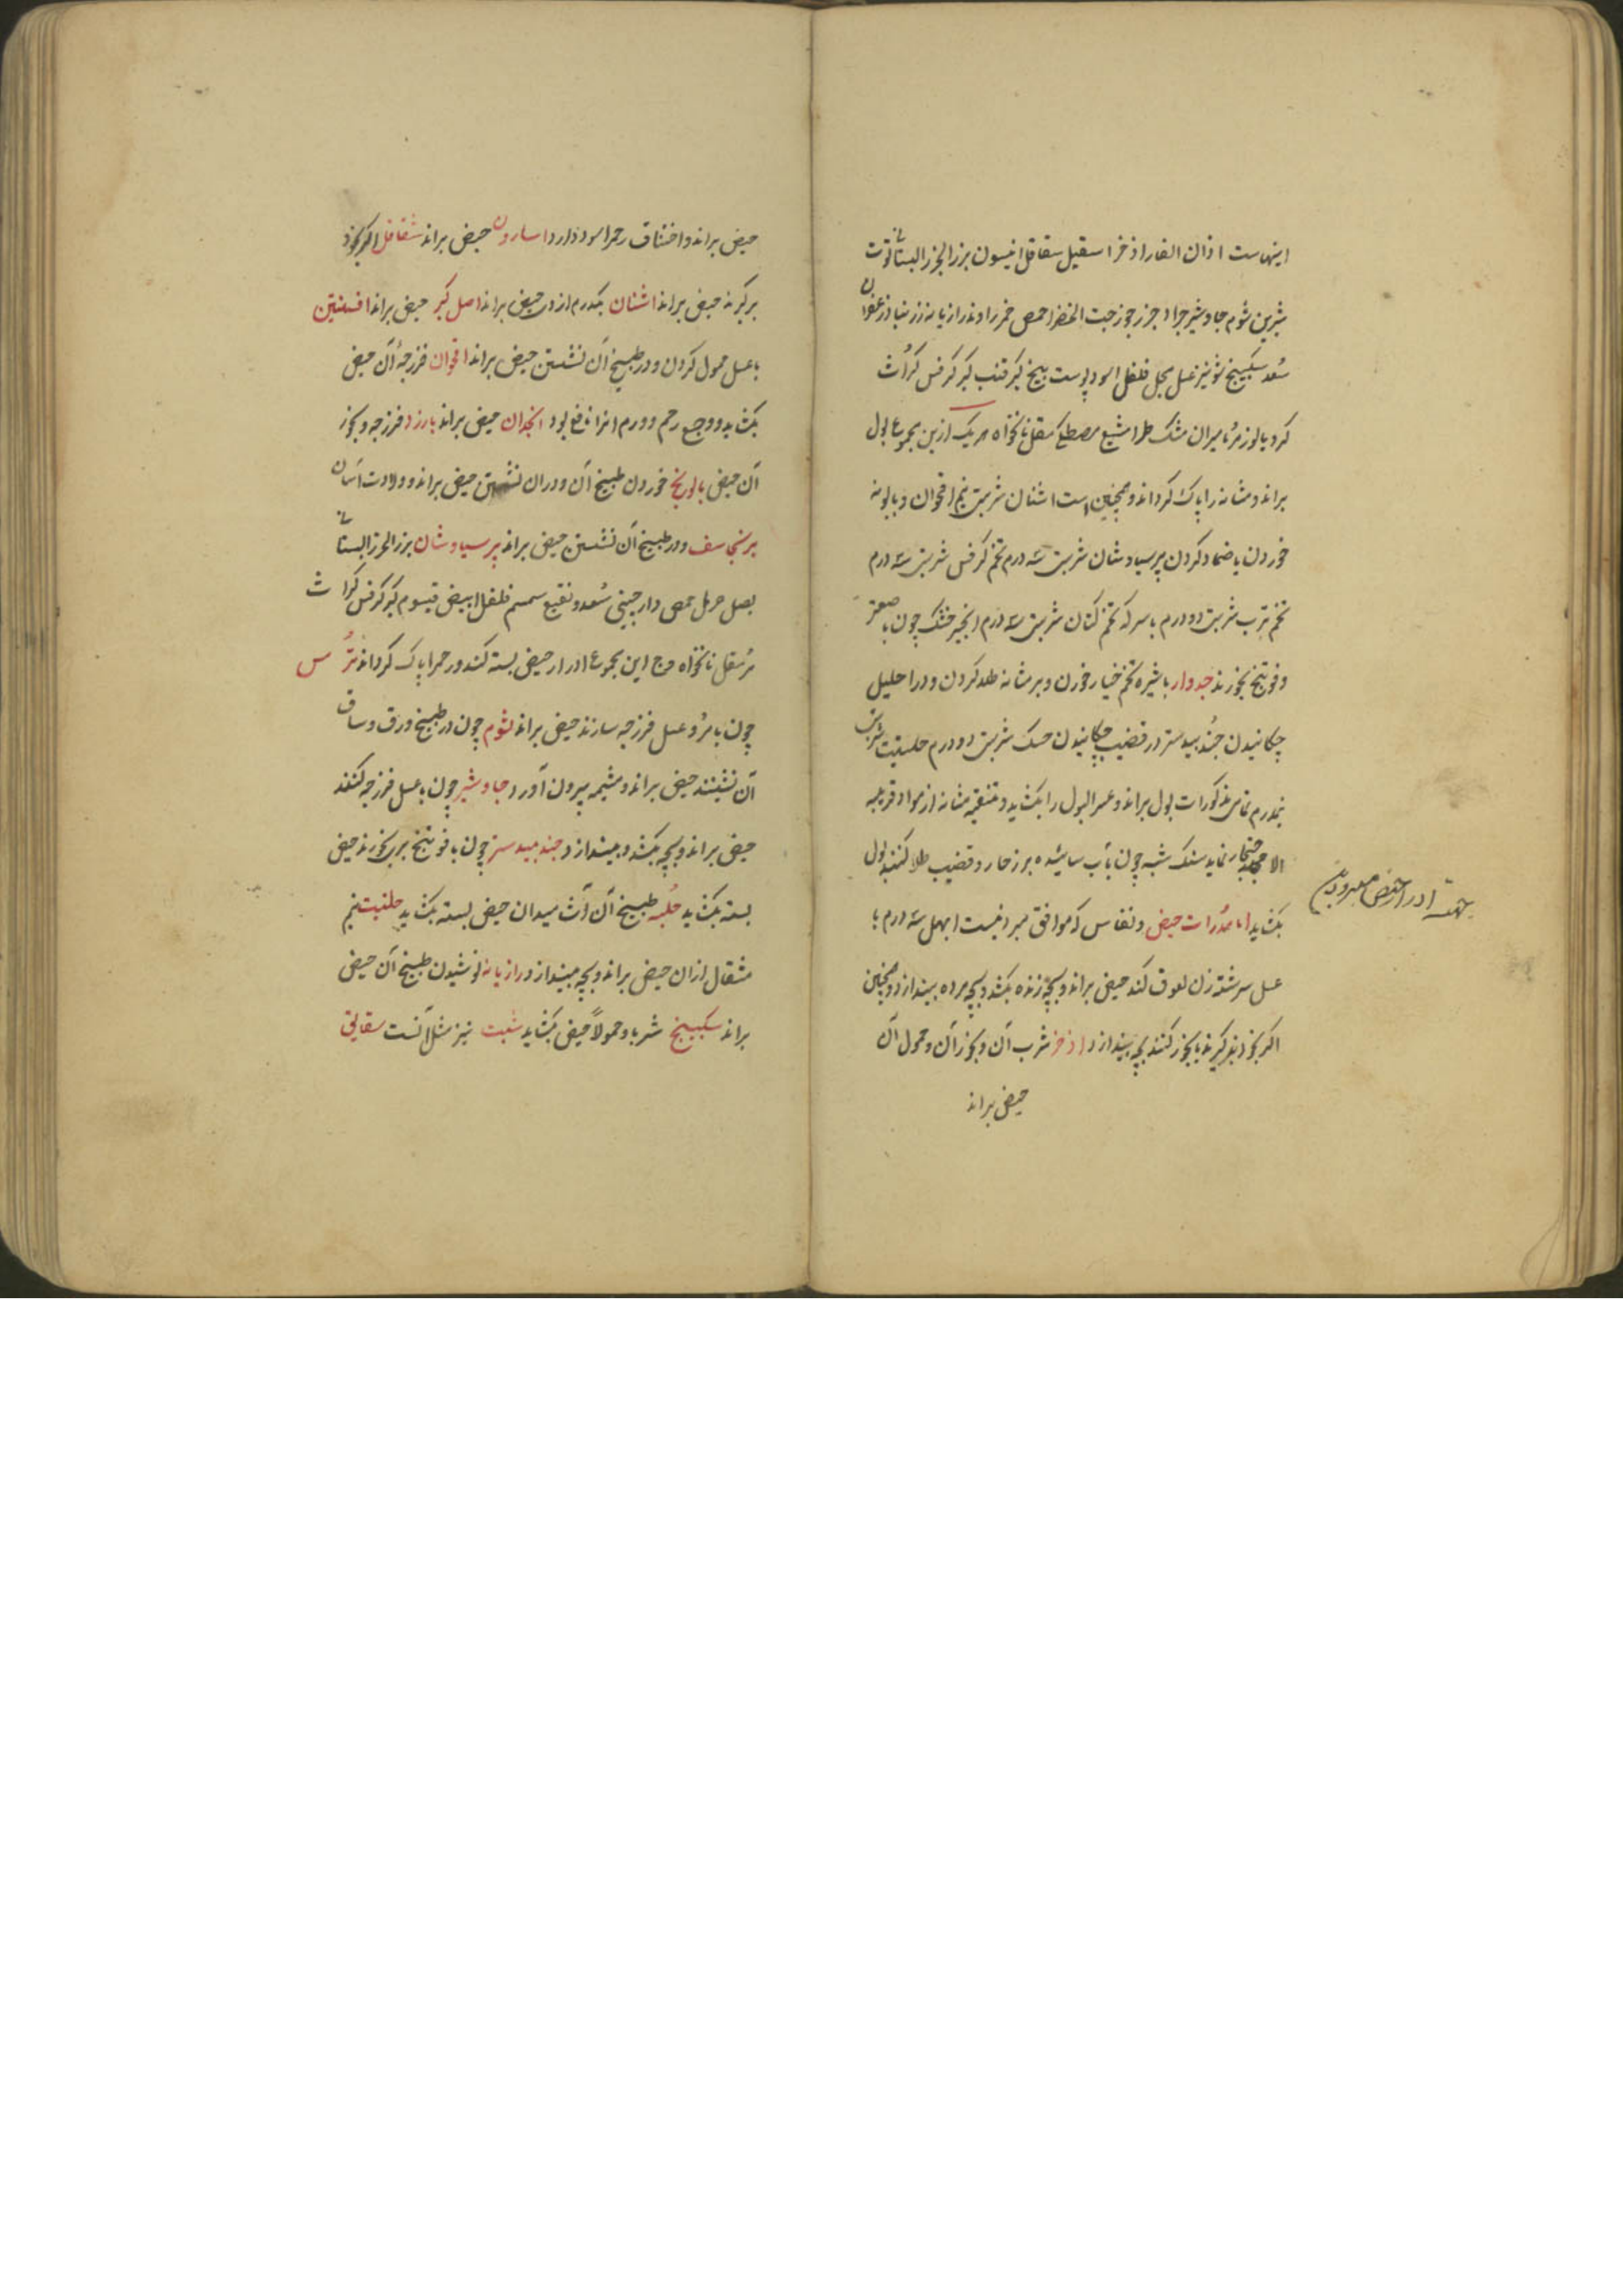 اینهاست اذان الفار اذخر اسقیل شقاقل انیسون بزر الجزر البستانی توت
شیرین ثوم جاوشیر جراد جزر جوز حبت الخضرا حمص خمر راوند رازیانه زرنباد زعفران
سعد سکبینج شونیز عسل بجل فلفل اسود پوست بیخ کبر قنب کبر کرفس کراث
کرد یا لوز مر مامیران مشک طرامشیع مصطکی مقل نانخواه هر یک ازین مجموع بول
براند و مثانه را پاک کرداند و همچنین است اشنان شربتی نیم اقحوان و بابونه
خوردن یا ضماد کردن پرسیاوشان شربتی سه درم تخم کرفس شربتی سه درم
تخم ترب شربتی دو درم با سرکه تخم کتان شربتی سه درم انجیر خشک چون با صعتر
و فوتنج بخورند جدوار با شیره تخم خیار خورن و بر مثانه طلا کردن و در احلیل
چکانیدن جند بیدستر در قضیب چکانیدن حسک شربتی دو درم حلتیت شربتی
نیمدرم تمامی مذکورات بول براند و عسر البول را بکشاید و تنقیه مثانه از مواد قریبه
نماید سنک شبه چون بآب سائیده بر زهار و قضیب طلا کنند بول
بکشاید اما مدرات حیض و نفاس که موافق مبرد نیست ابهل سه درم با
عسل سرشته زن لعوق کند حیض براند و بچه زنده بکشد و بچه مرده بیندازد و همچنین
اکر بخود برکیرند یا بخور کنند بچه بیندازد اذخر شرب آن و بخور آن و حمول آن
حیض براند
جهت ادرار حیض
حیض براند و اختناق رحم را سود دارد اسارون حیض براند شقاقل اکر بخود
برکیرند حیض براند اشنان یکدرم از در حیض براند اصل کبر حیض براند افسنتین
با عسل حمول کردن و در طبیخ آن نشستن حیض براند اقحوان فرزجهٔ آن حیض
بکشاید و وجع رحم و ورم انرا نافع بود انجدان حیض براند بارزد فرزجه و بخور
آن حیض بالورنج خوردن طبیخ آن و دران نشستن حیض براند و ولادت آسان
برنجاسف و در طبیخ آن نشستن حیض براند پرسیاوشان بزر الجزر البستانی
بصل حرمل حمص دارچینی سعد و نقیع سمسم فلفل ابیض قیسوم کبر کرفس کراث
مر مقل نانخواه وج این مجموع ادرار حیض بسته کنند و رحم را پاک کرداند ترمس
چون با مر و عسل فرزجه سازند حیض براند ثوم چون در طبیخ ورق و ساق
آن نشینند حیض براند و مشیمه بیرون آورد جاوشیر چون با عسل فرزجه کنند
حیض براند و بچه بکشد و بیندازد جند بیدستر چون با فوتنج بری بخورند حیض
بسته بکشاید حلبه طبیخ آن آشامیدان حیض بسته بکشاید حلتیت نیم
مثقال ازان حیض براند و بچه بیندازد رازیانه نوشیدن طبیخ آن حیض
براند سکبینج شربا و حمولاً حیض بکشاید شبت نیز مثل آنست سقالی